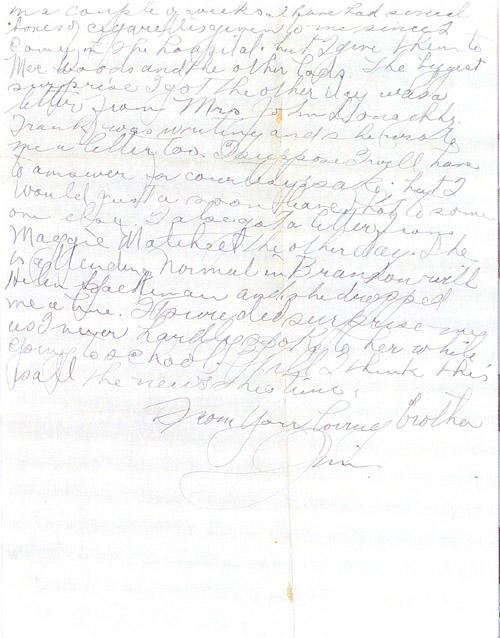 in a couple of weeks. I have had several
boxes of cigarettes given to me since I
came in the hospital. but I give them to
Mac Woods and the other lads. The biggest
surprise I got the other day was a
letter from Mrs John Donachy.
Frank was writing and she wrote
me a letter too. I suppose I will have
to answer for courtesy sake, but I
would just a soon have got some
one else. I also got a letter from
Maggie the other day. She
is attending Normal in Brandon with
Helen and she dropped
me a line. It sure did surprise me
as I never hardly spoke to her while
going to school. Well I think this
is all the news this time.
From Your loving brother
Jim